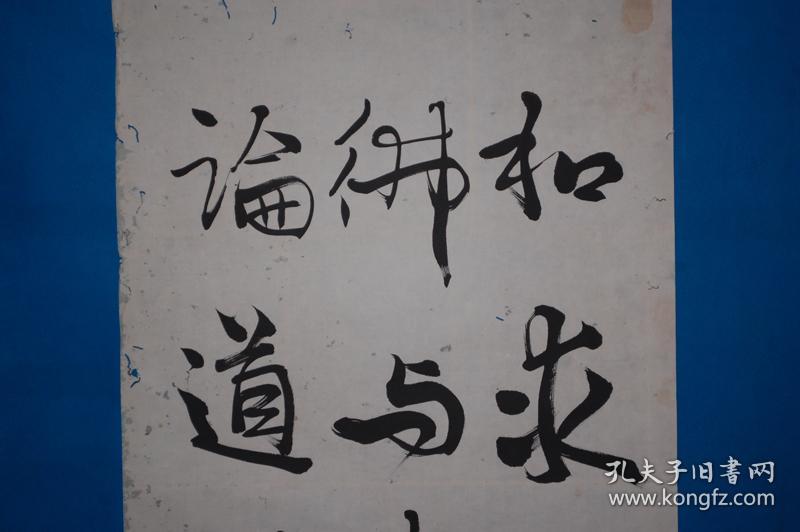 和求
彿与
論道
孔夫子旧書网
www.kongfz.com